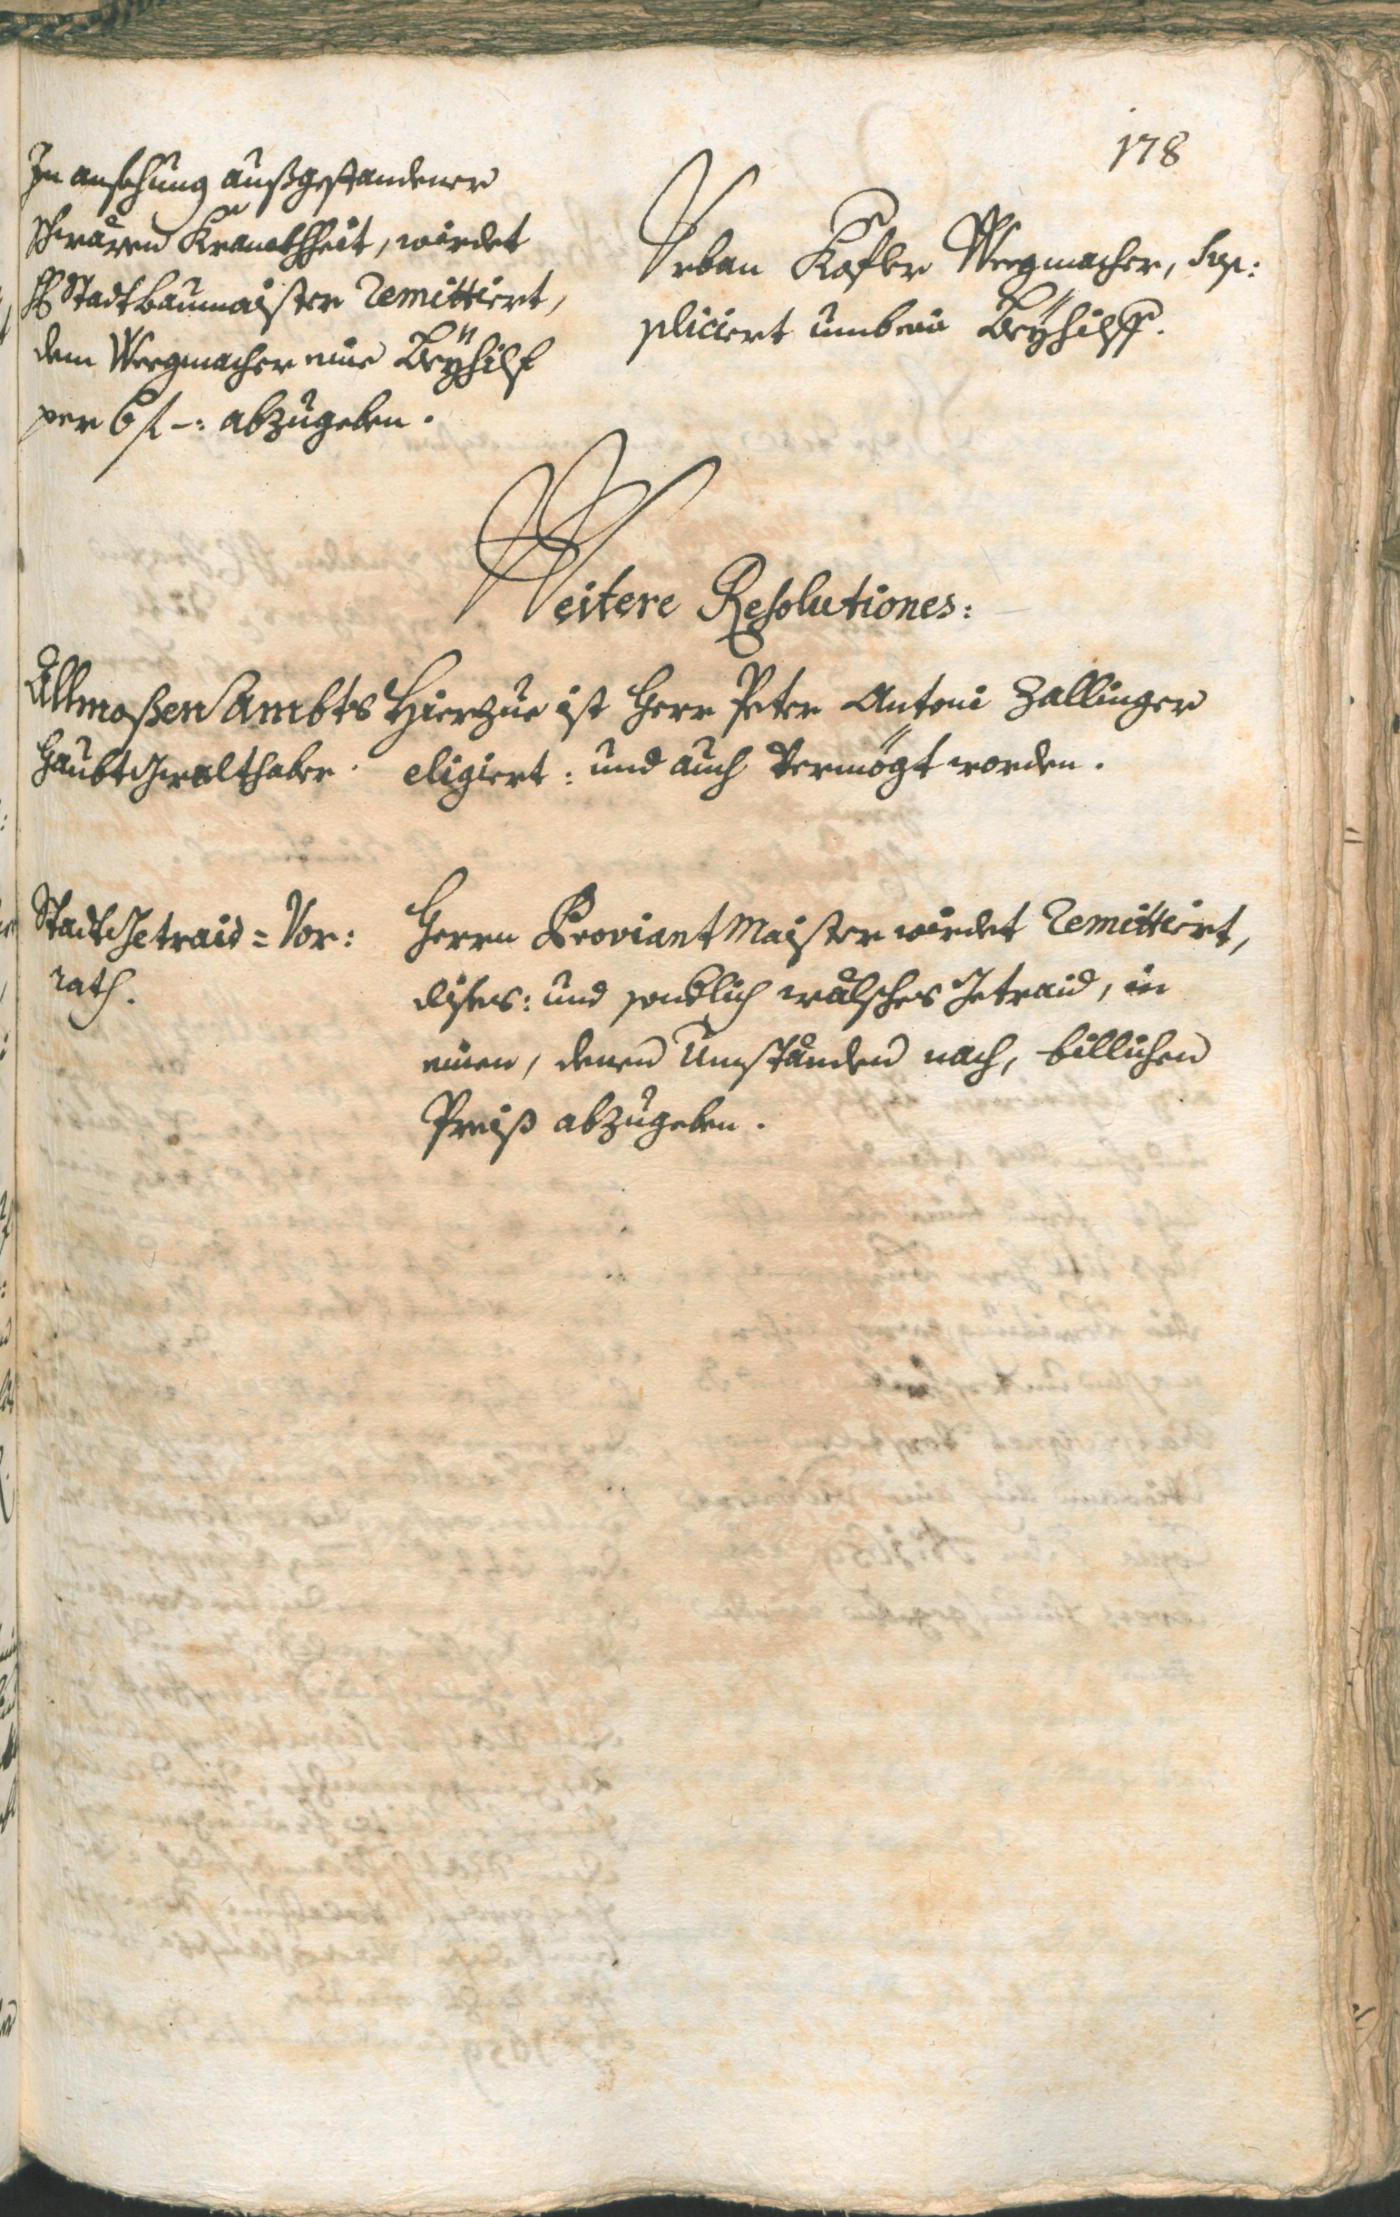 178
In ansehung außgestandener
schwären Kranckhheit, wirdet
H: Stadtbaumaister remittiert,
dem Weegmacher eine Beÿhilf
per 6 f -: abzugeben.
Urban Kofler Weegmacher, sup:
pliciert umb ein Beÿhilff.
Weitere Resolutiones:
Allmoßen Ambts
Haubt Gwalthaber.
Hierzue ist Herr Peter Antoni Zallinger
eligiert: und auch vermögt worden.
Stadt Getraid = Vor:
rath.
Herrn Proviant Maister wirdet remittiert,
dises: und sontlich wälsches Getraid, in
einen, denen Umständen nach, billichen
Preiß abzugeben.